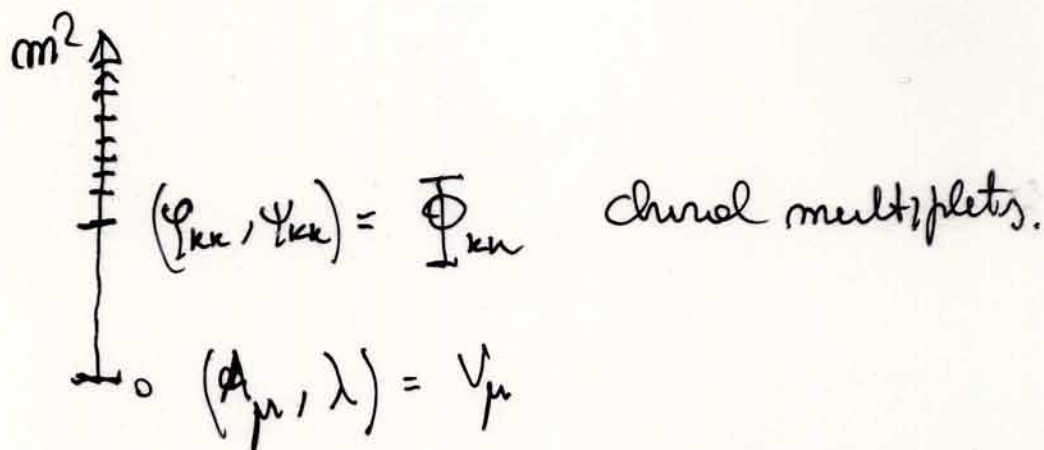 m²
(φ_KK, ψ_KK) = Φ_KK chiral multiplets.
0 (A_μ, λ) = V_μ